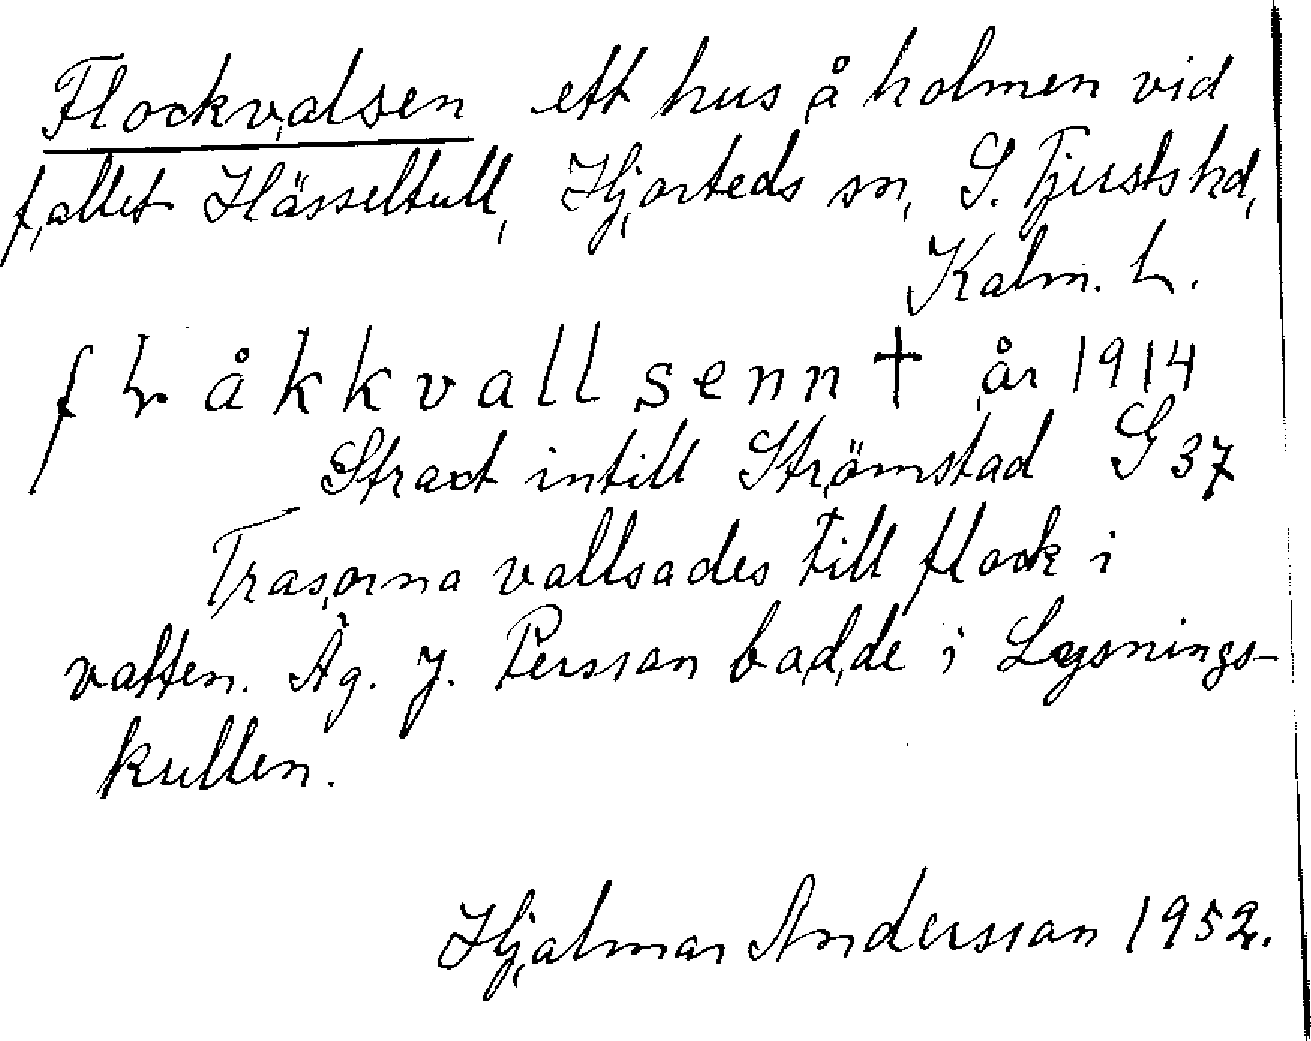 Flockvalsen ett hus å holmen vid
fallet Hässeltull, Hjorteds sn, S. Tjusts hd,
Kalm. L.
f L å k k v a l l s e n n † år 1914
Straxt intill Strömstad G 37
Trasorna vallsades till flock i
vatten. Äg. J. Persson bodde i Lysnings-
kullen.
Hjalmar Andersson 1952.